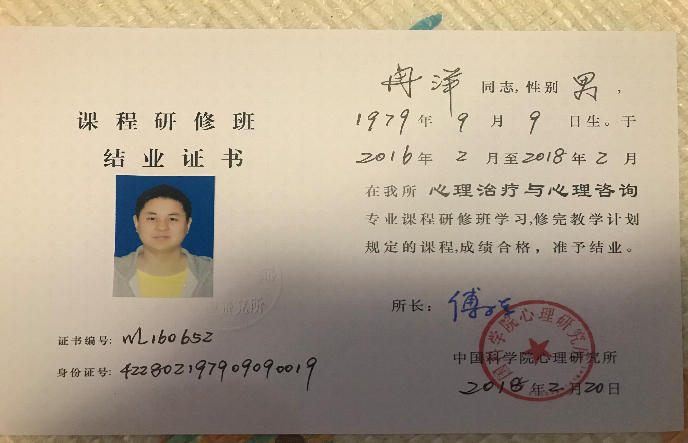 课程研修班
结业证书
证书编号: WL160652
身份证号: 422802197909090019
冉洋 同志, 性别 男,
1979年 9 月 9 日生。于
2016年 2 月至2018年 2 月
在我所 心理治疗与心理咨询
专业课程研修班学习,修完教学计划
规定的课程,成绩合格，准予结业。
所长:
中国科学院心理研究所
2018年2月20日